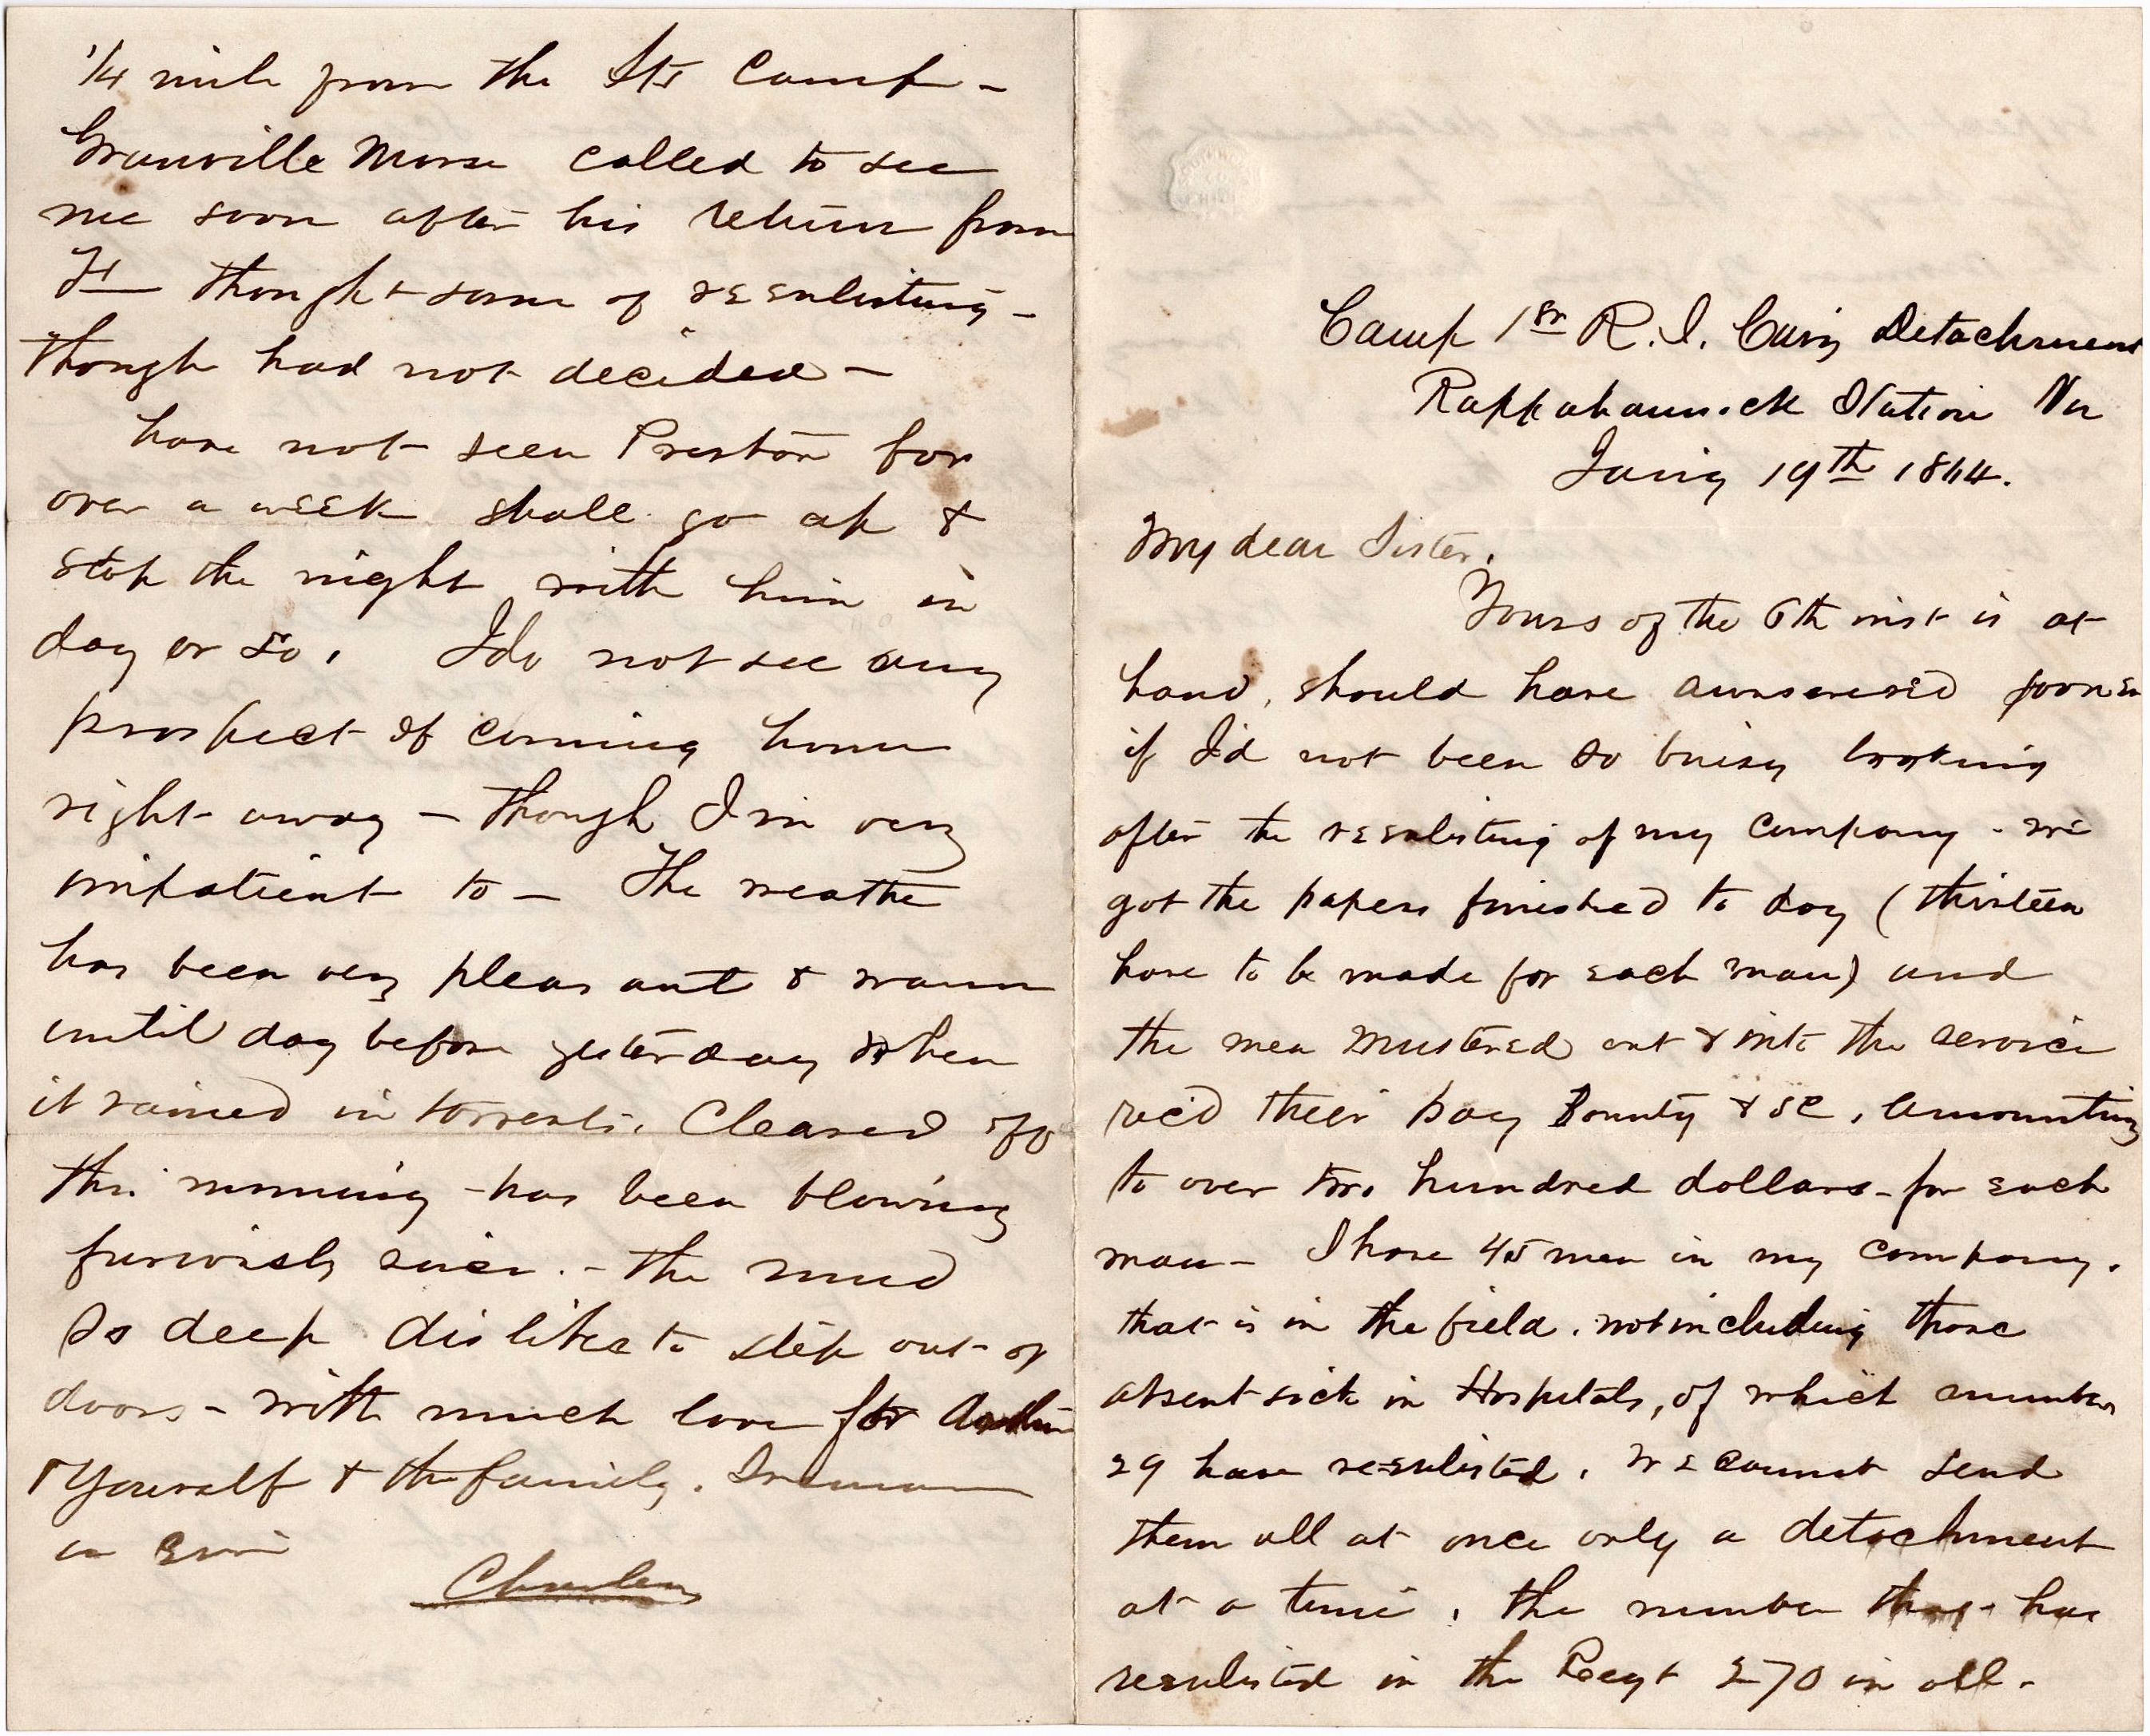 Camp 1st R. I. Cavy Detachment
Rappahannock Station Va
Jany 19th 1864.
My dear Sister.
Yours of the 6th inst is at
hand, should have answereed sooner
if I'd not been so buisy looking
after the reenlisting of my company - we
got the papers finished to day (thirteen
have to be made for each man) and
the men mustered out & into the service
rec'd their pay Bounty & sc, amounting
to over two hundred dollars - for each
man - I have 45 men in my company.
that is in the field. not including those
absent sick in Hospitals, of which number
29 have re-enlisted. We cannot send
them all at once only a detachment
at a time. The number that has
reenlisted in the Regt 270 in all.
1/4 mile from the Camp -
Granville Morse called to see
me soon after his return from
thought some of reenlisting -
though had not decided -
have not seen Preston for
over a week shall go up &
stop the night with him in
day or so. I do not see any
prospect of coming home
right away - though I'm very
impatient to - The weathe
has been very pleasant & warm
until day before yesterday when
it rained in torrents. Cleared off
this morning - has been blowing
furiously since. - the mud
so deep dislike to step out of
doors - with much love for
& Yourself & the family. I remain
as Ever
Charles